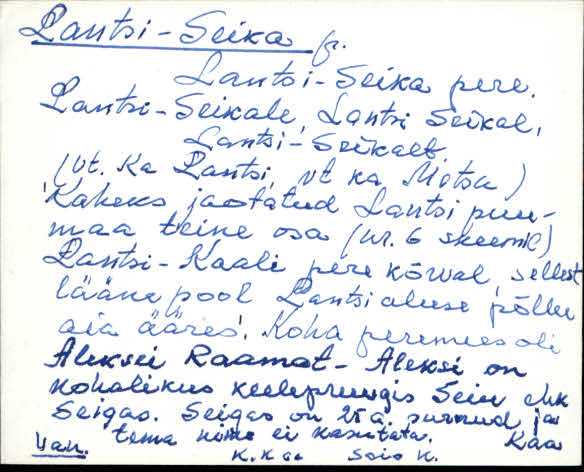 Lantsi-Seika fr.
Lantsi-Seika pere.
Lantsi-Seikale, Lantsi Seikal,
Lantsi-Seikalt.
(Vt. ka Lantsi, vt ka Motsu)
Kaheks jaotatud Lantsi puu-
maa teine osa (nr. 6 skeemil)
Lantsi-Kaali pere kõrval, sellest
lääne pool Lantsialuse põllu
aia ääres. Koha peremees oli
Aleksei Raamat - Aleksi on
kohalikus keelepruugis Seiu ehk
Seigas. Seigas on 25 a. surnud ja
tema nime ei kasutata. Kaa
Van. K. Kaa